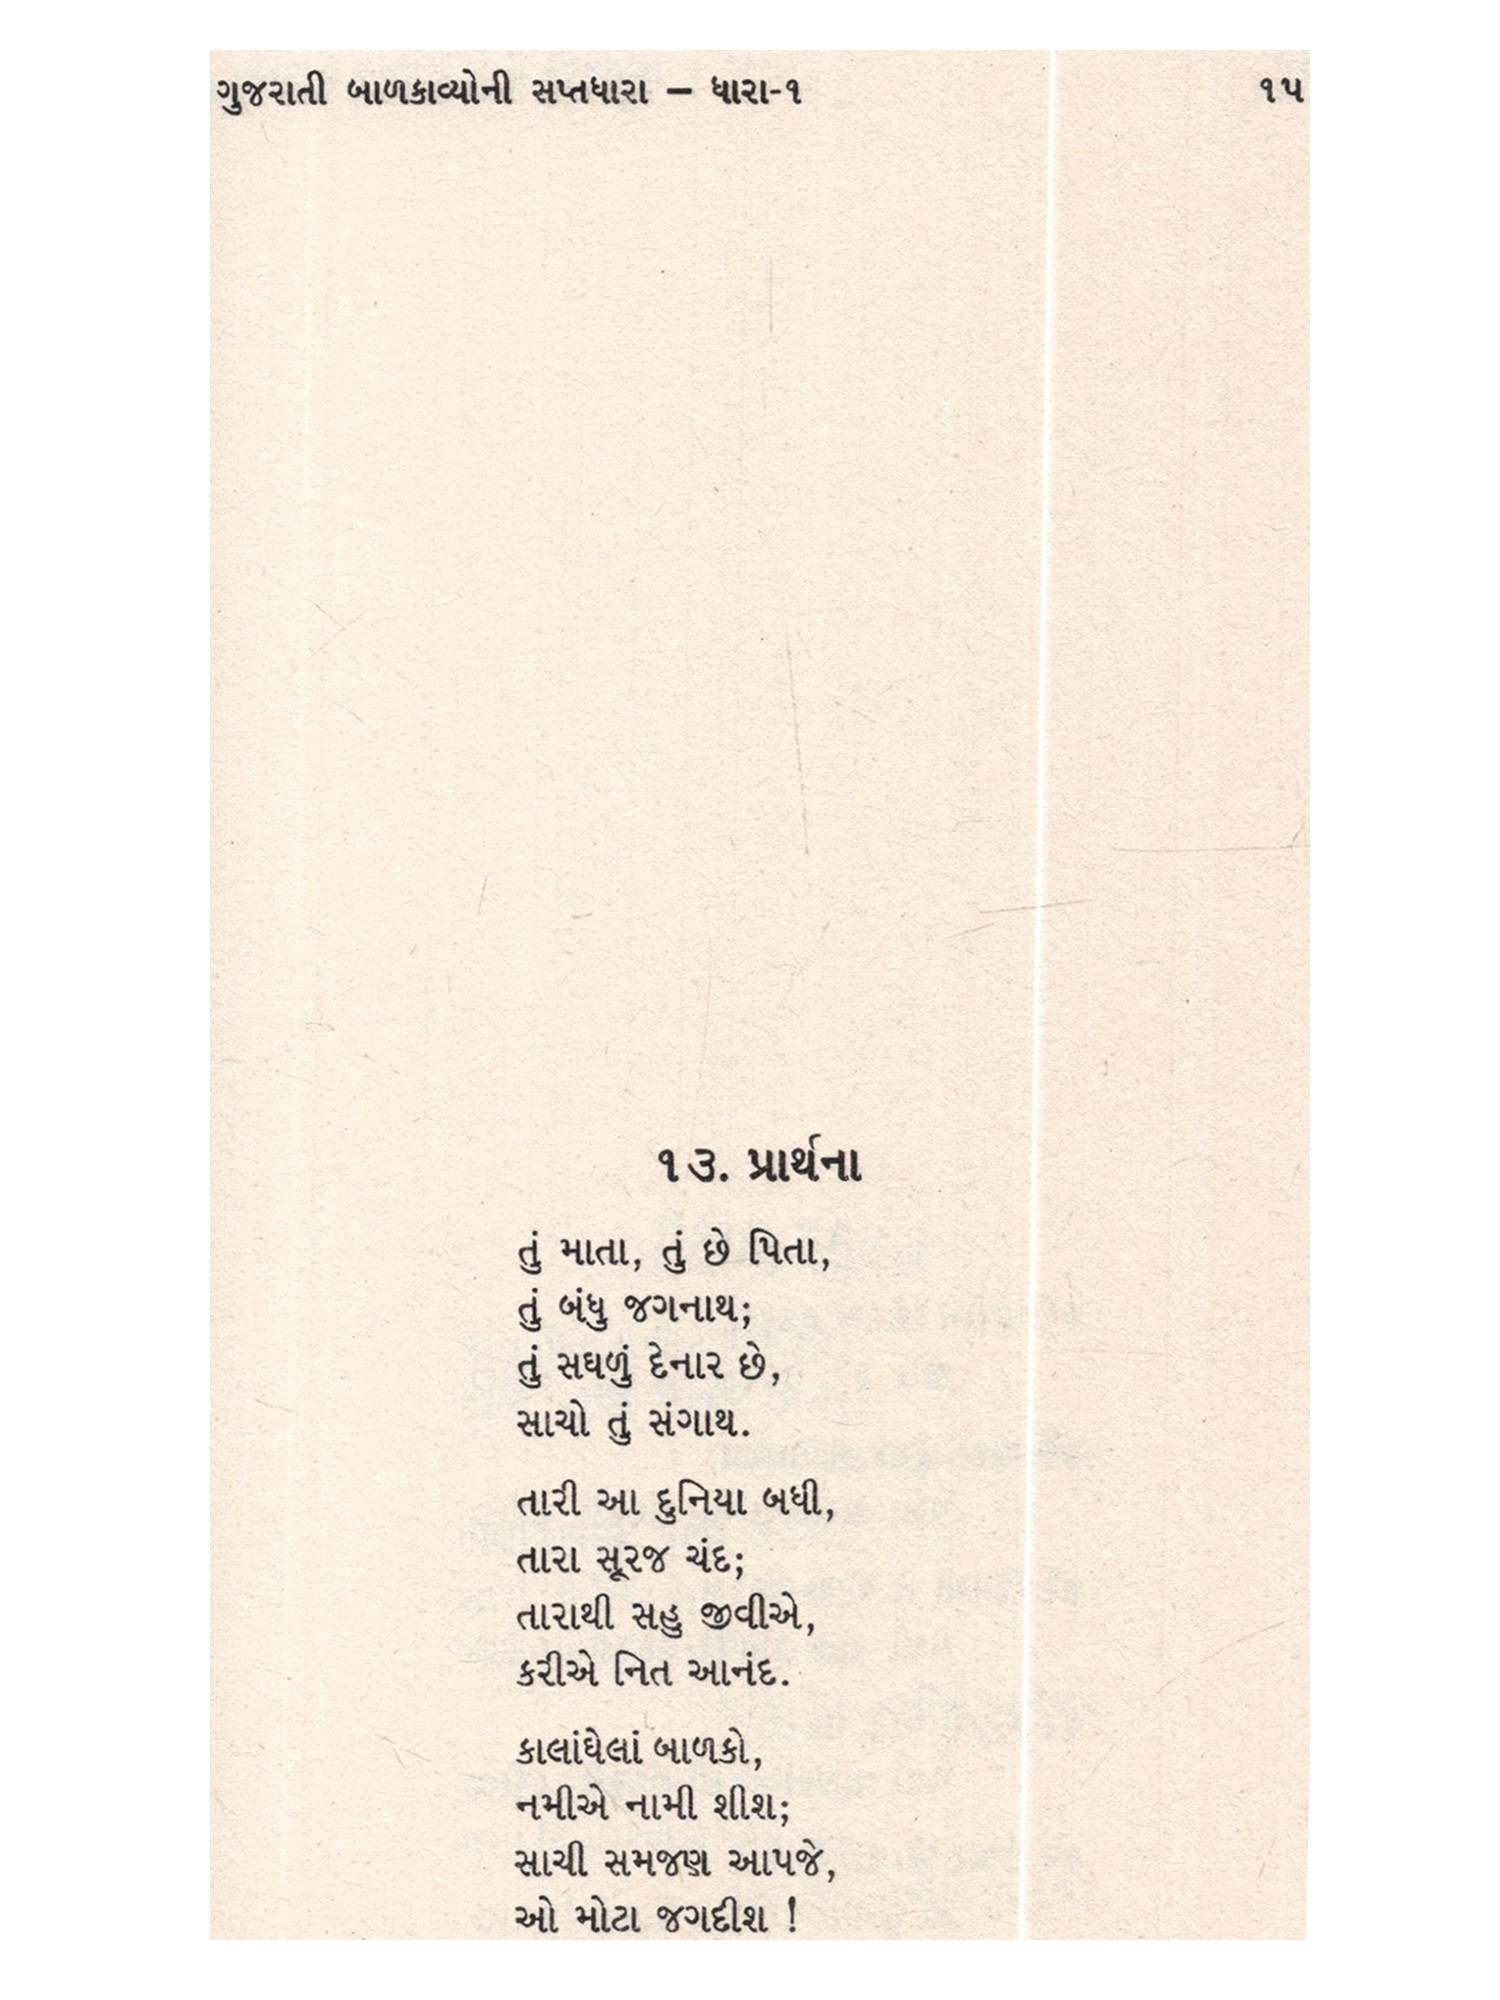 ગુજરાતી બાળકાવ્યોની સપ્તધારા – ધારા-૧ ૧૫
૧૩. પ્રાર્થના
તું માતા, તું છે પિતા,
તું બંધુ જગનાથ;
તું સઘળું દેનાર છે,
સાચો તું સંગાથ.
તારી આ દુનિયા બધી,
તારા સૂરજ ચંદ;
તારાથી સહુ જીવીએ,
કરીએ નિત આનંદ.
કાલાંઘેલાં બાળકો,
નમીએ નામી શીશ;
સાચી સમજણ આપજે,
ઓ મોટા જગદીશ !